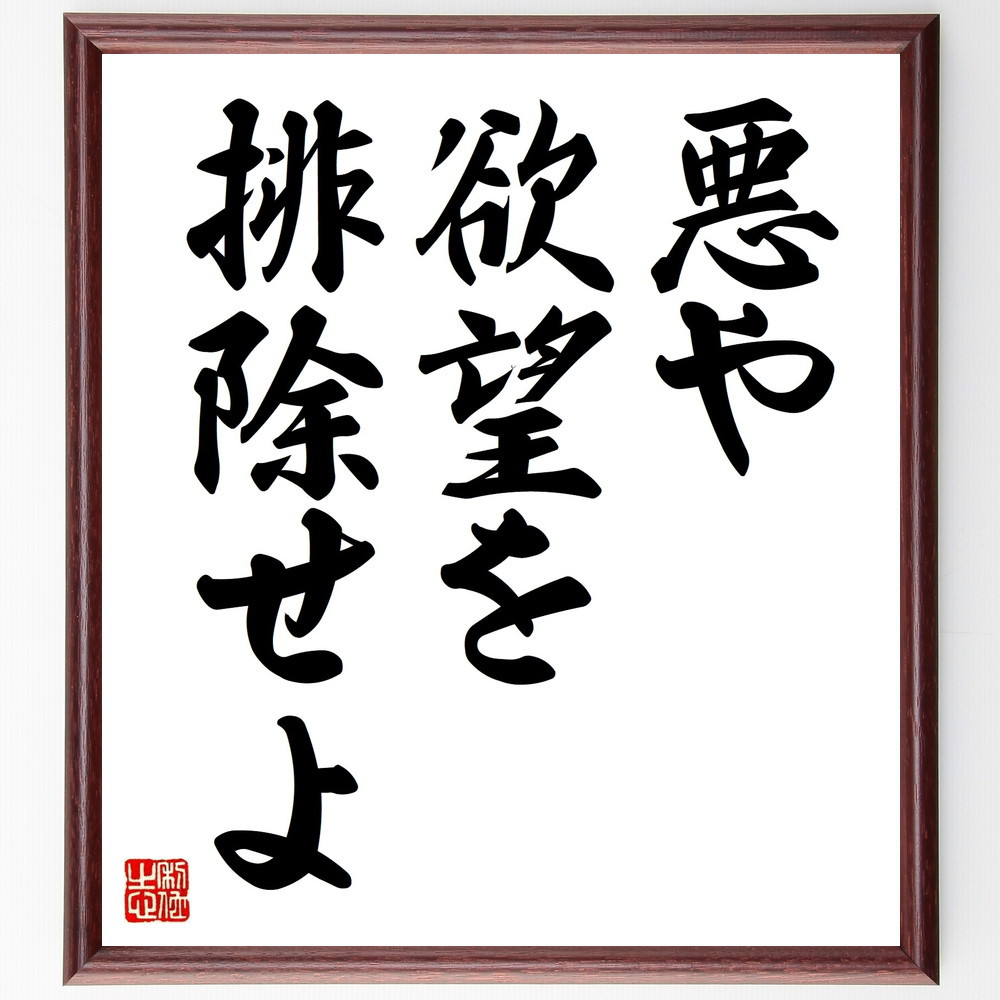 悪や
欲望を
排除せよ